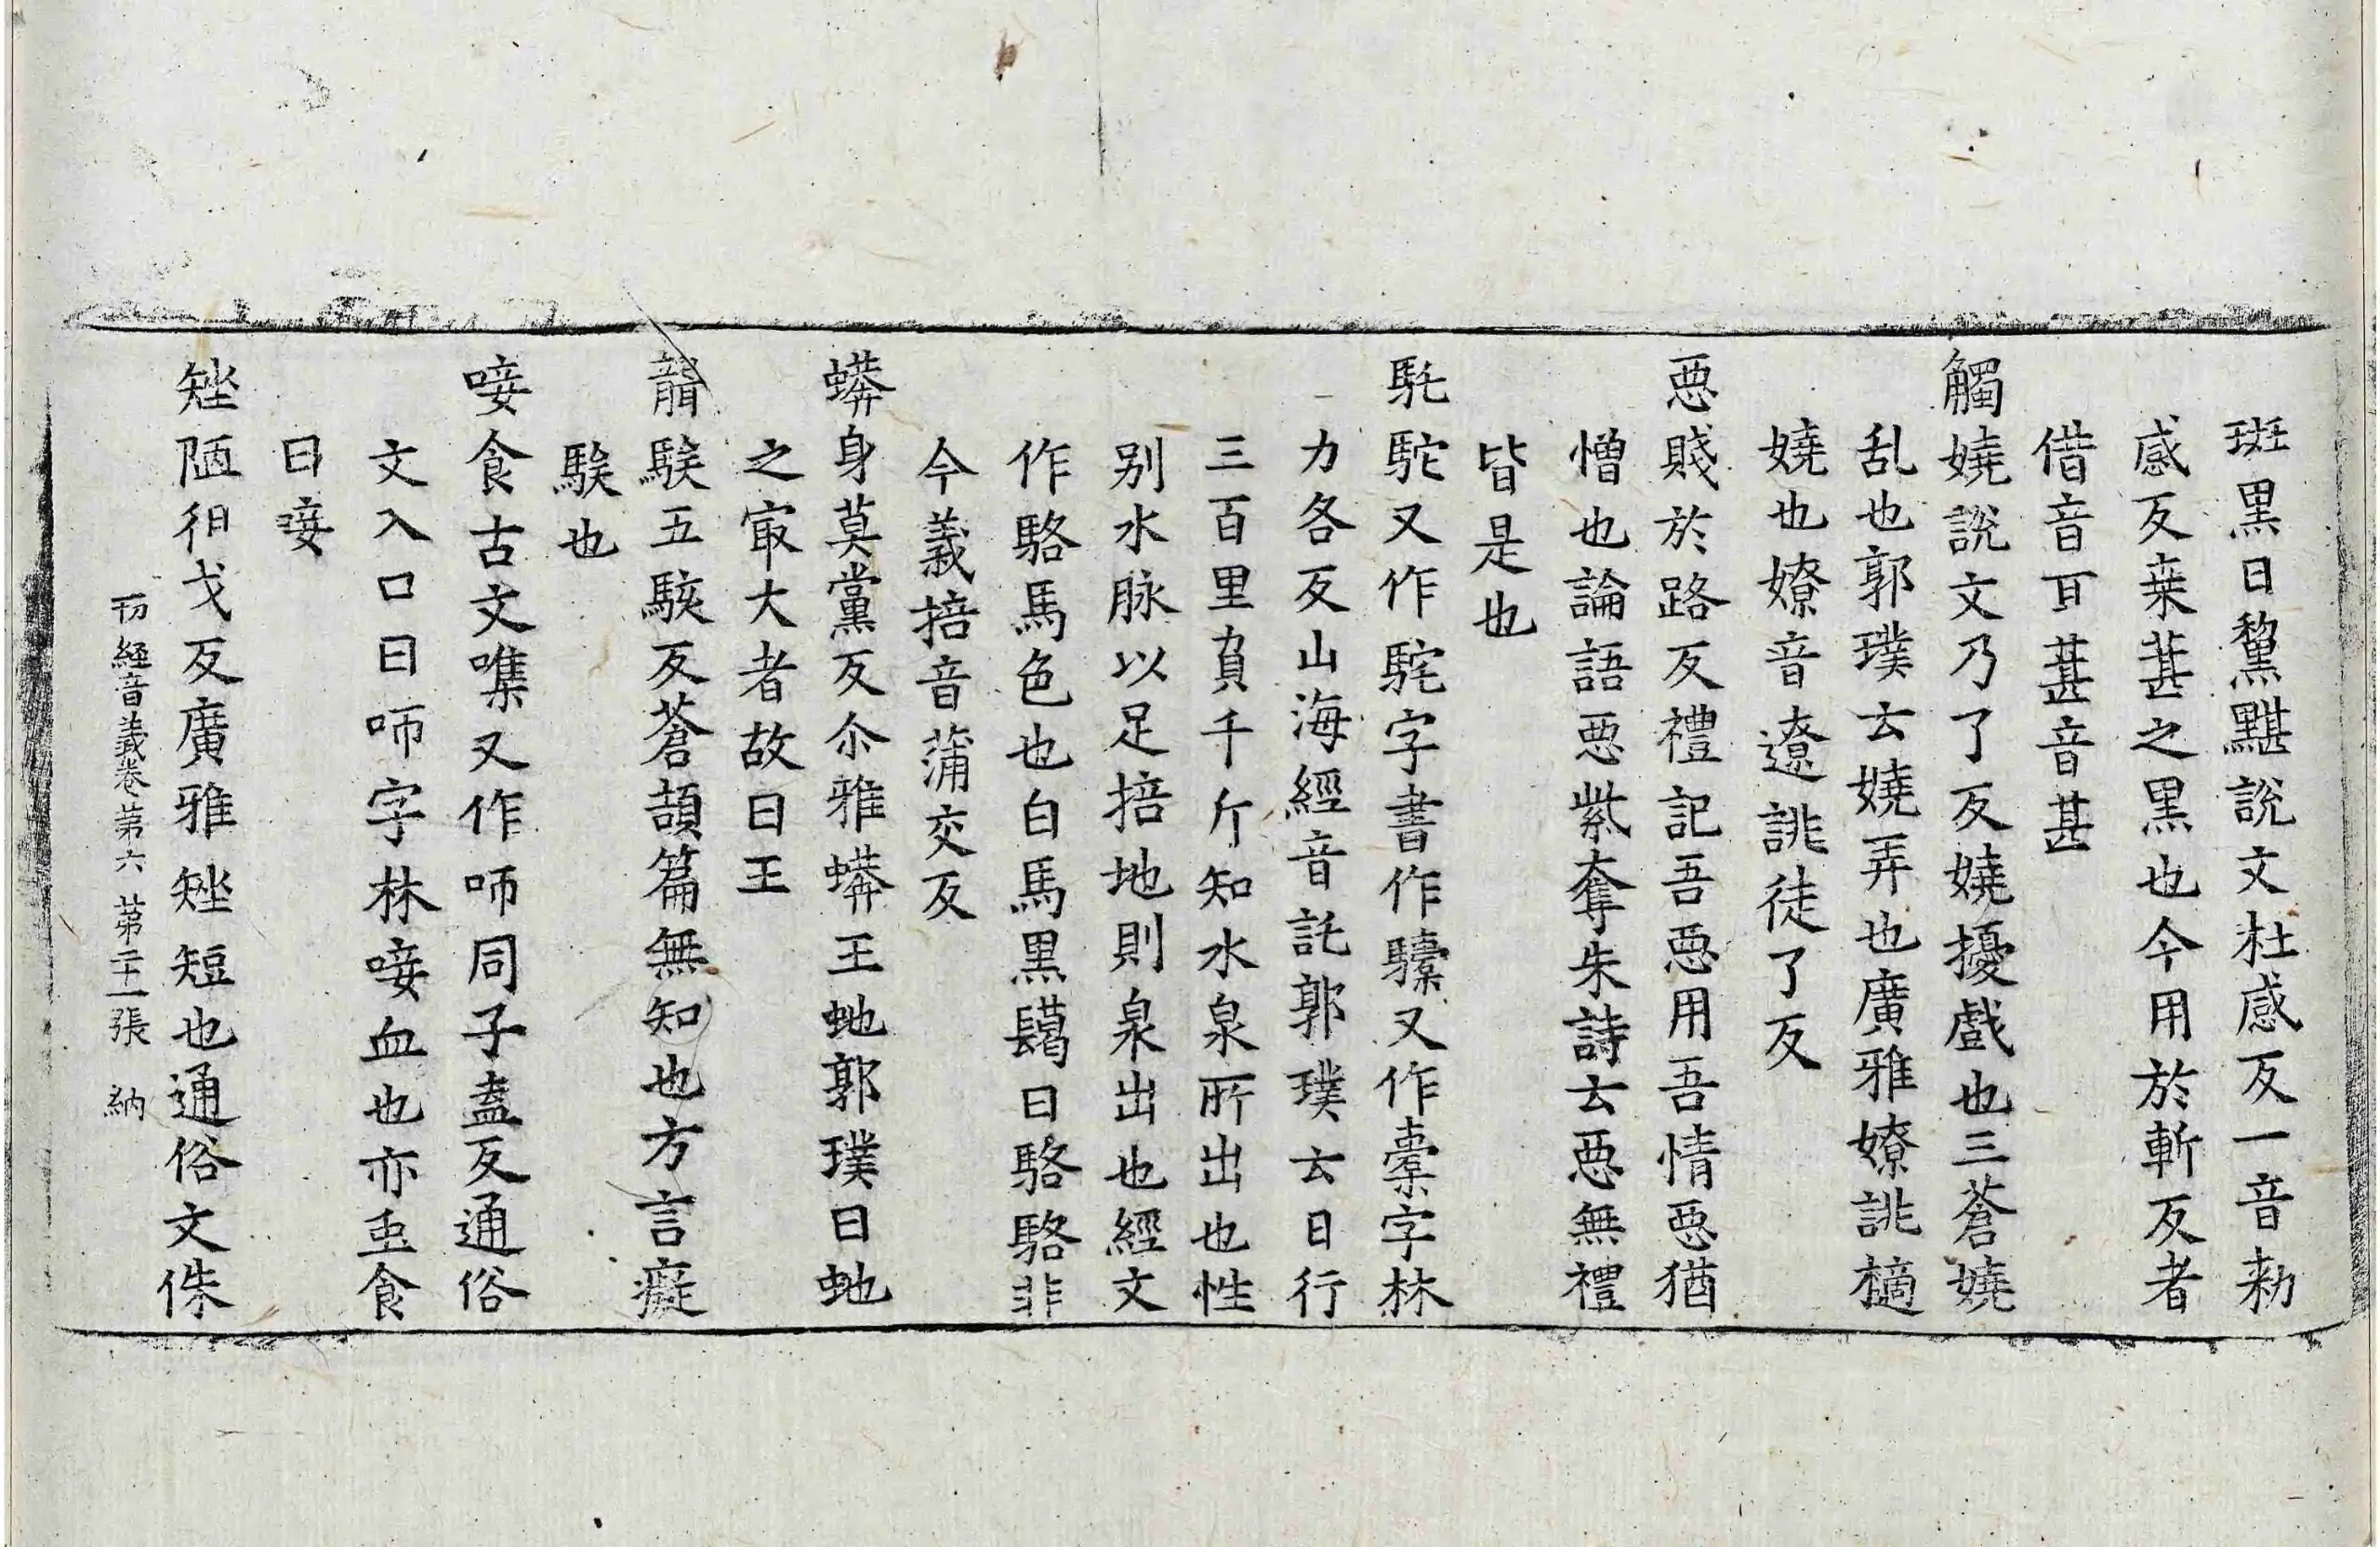 斑黑曰黧黮說文杜感反一音勑
感反桒葚之黑也今用於斬反者
借音耳葚音甚
觸嬈說文乃了反嬈擾戲也三蒼嬈
乱也郭璞云嬈弄也廣雅嫽誂擿
嬈也嫽音遼誂徒了反
惡賤於路反禮記吾惡用吾情惡猶
憎也論語惡紫奪朱詩云惡無禮
皆是也
馲駝又作駞字書作驝又作橐字林
力各反山海經音託郭璞云日行
三百里負千斤知水泉所出也性
别水脉以足掊地則泉出也經文
作駱馬色也白馬黑䯱曰駱駱非
今義掊音蒲交反
蟒身莫黨反尒雅蟒王虵郭璞曰虵
之冣大者故曰王
聾騃五駭反蒼頡篇無知也方言癡
騃也
唼食古文噍又作咂同子盍反通俗
文入口曰咂字林唼血也亦䖝食
曰唼
矬陋徂戈反廣雅矬短也通俗文侏
一切經音義卷苐六 苐二十一張 納